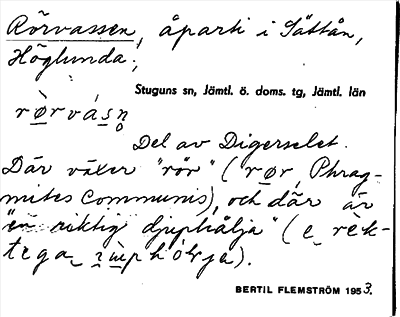 Rörvassen, åparti i Sättån,
Höglunda.
Stuguns sn, Jämtl. ö. doms. tg, Jämtl. län
Del av Digerselet.
Där växer "rör" (rør, Phrag-
mites communis), och där är
"en riktig djuphålja" (
BERTIL FLEMSTRÖM 1953.